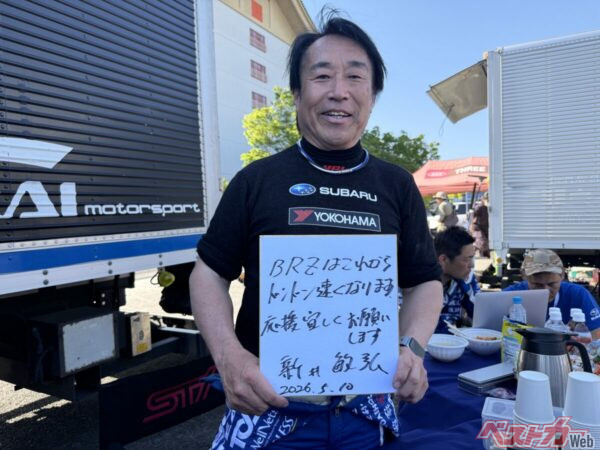 AI motorsport
SUBARU
YOKOHAMA
BRZはこれから
ドンドン速くなります
応援宜しくお願い
します
新井敏弘
2026.5.10
STI
THREE
ベストカーWeb